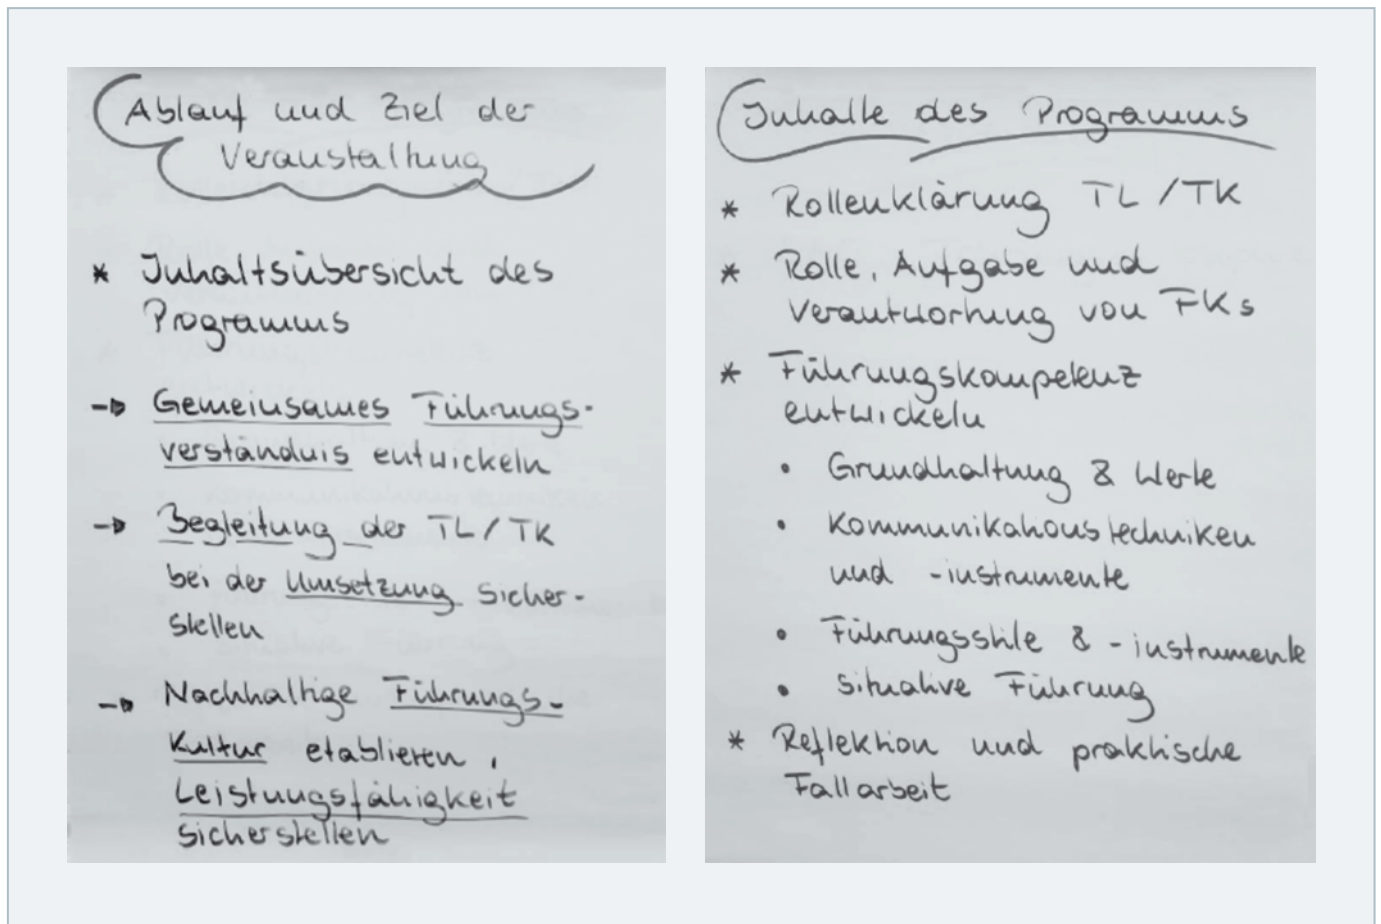 Ablauf und Ziel der
Veranstaltung
* Inhaltsübersicht des
Programms
→ Gemeinsames Führungs-
verständnis entwickeln
→ Begleitung der TL/TK
bei der Umsetzung sicher-
stellen
→ Nachhaltige Führungs-
Kultur etablieren,
Leistungsfähigkeit
sicherstellen
Inhalte des Programms
* Rollenklärung TL/TK
* Rolle, Aufgabe und
Verantwortung von FKs
* Führungskompetenz
entwickeln
• Grundhaltung & Werte
• Kommunikationstechniken
und -instrumente
• Führungsstile & -instrumente
• Situative Führung
* Reflektion und praktische
Fallarbeit